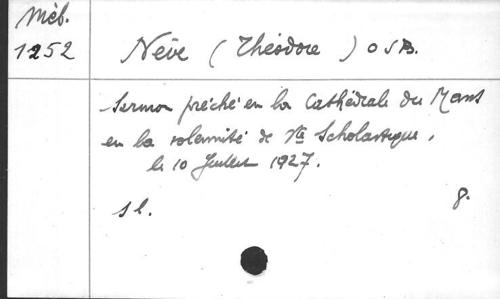 Mél.
1252
Nève (Théodore) OSB.
Sermon prêché en la Cathédrale du Mans
en la solennité de Ste Scholastique,
le 10 Juillet 1927.
s l.
8.